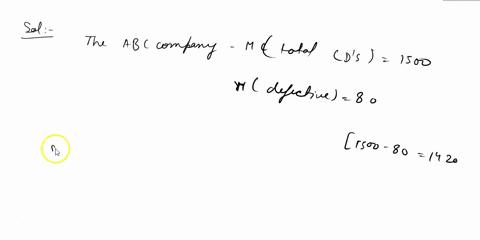 Sol:-
The ABC company - M( total (D's) = 1500
n( defective) = 80
[1500 - 80 = 1420